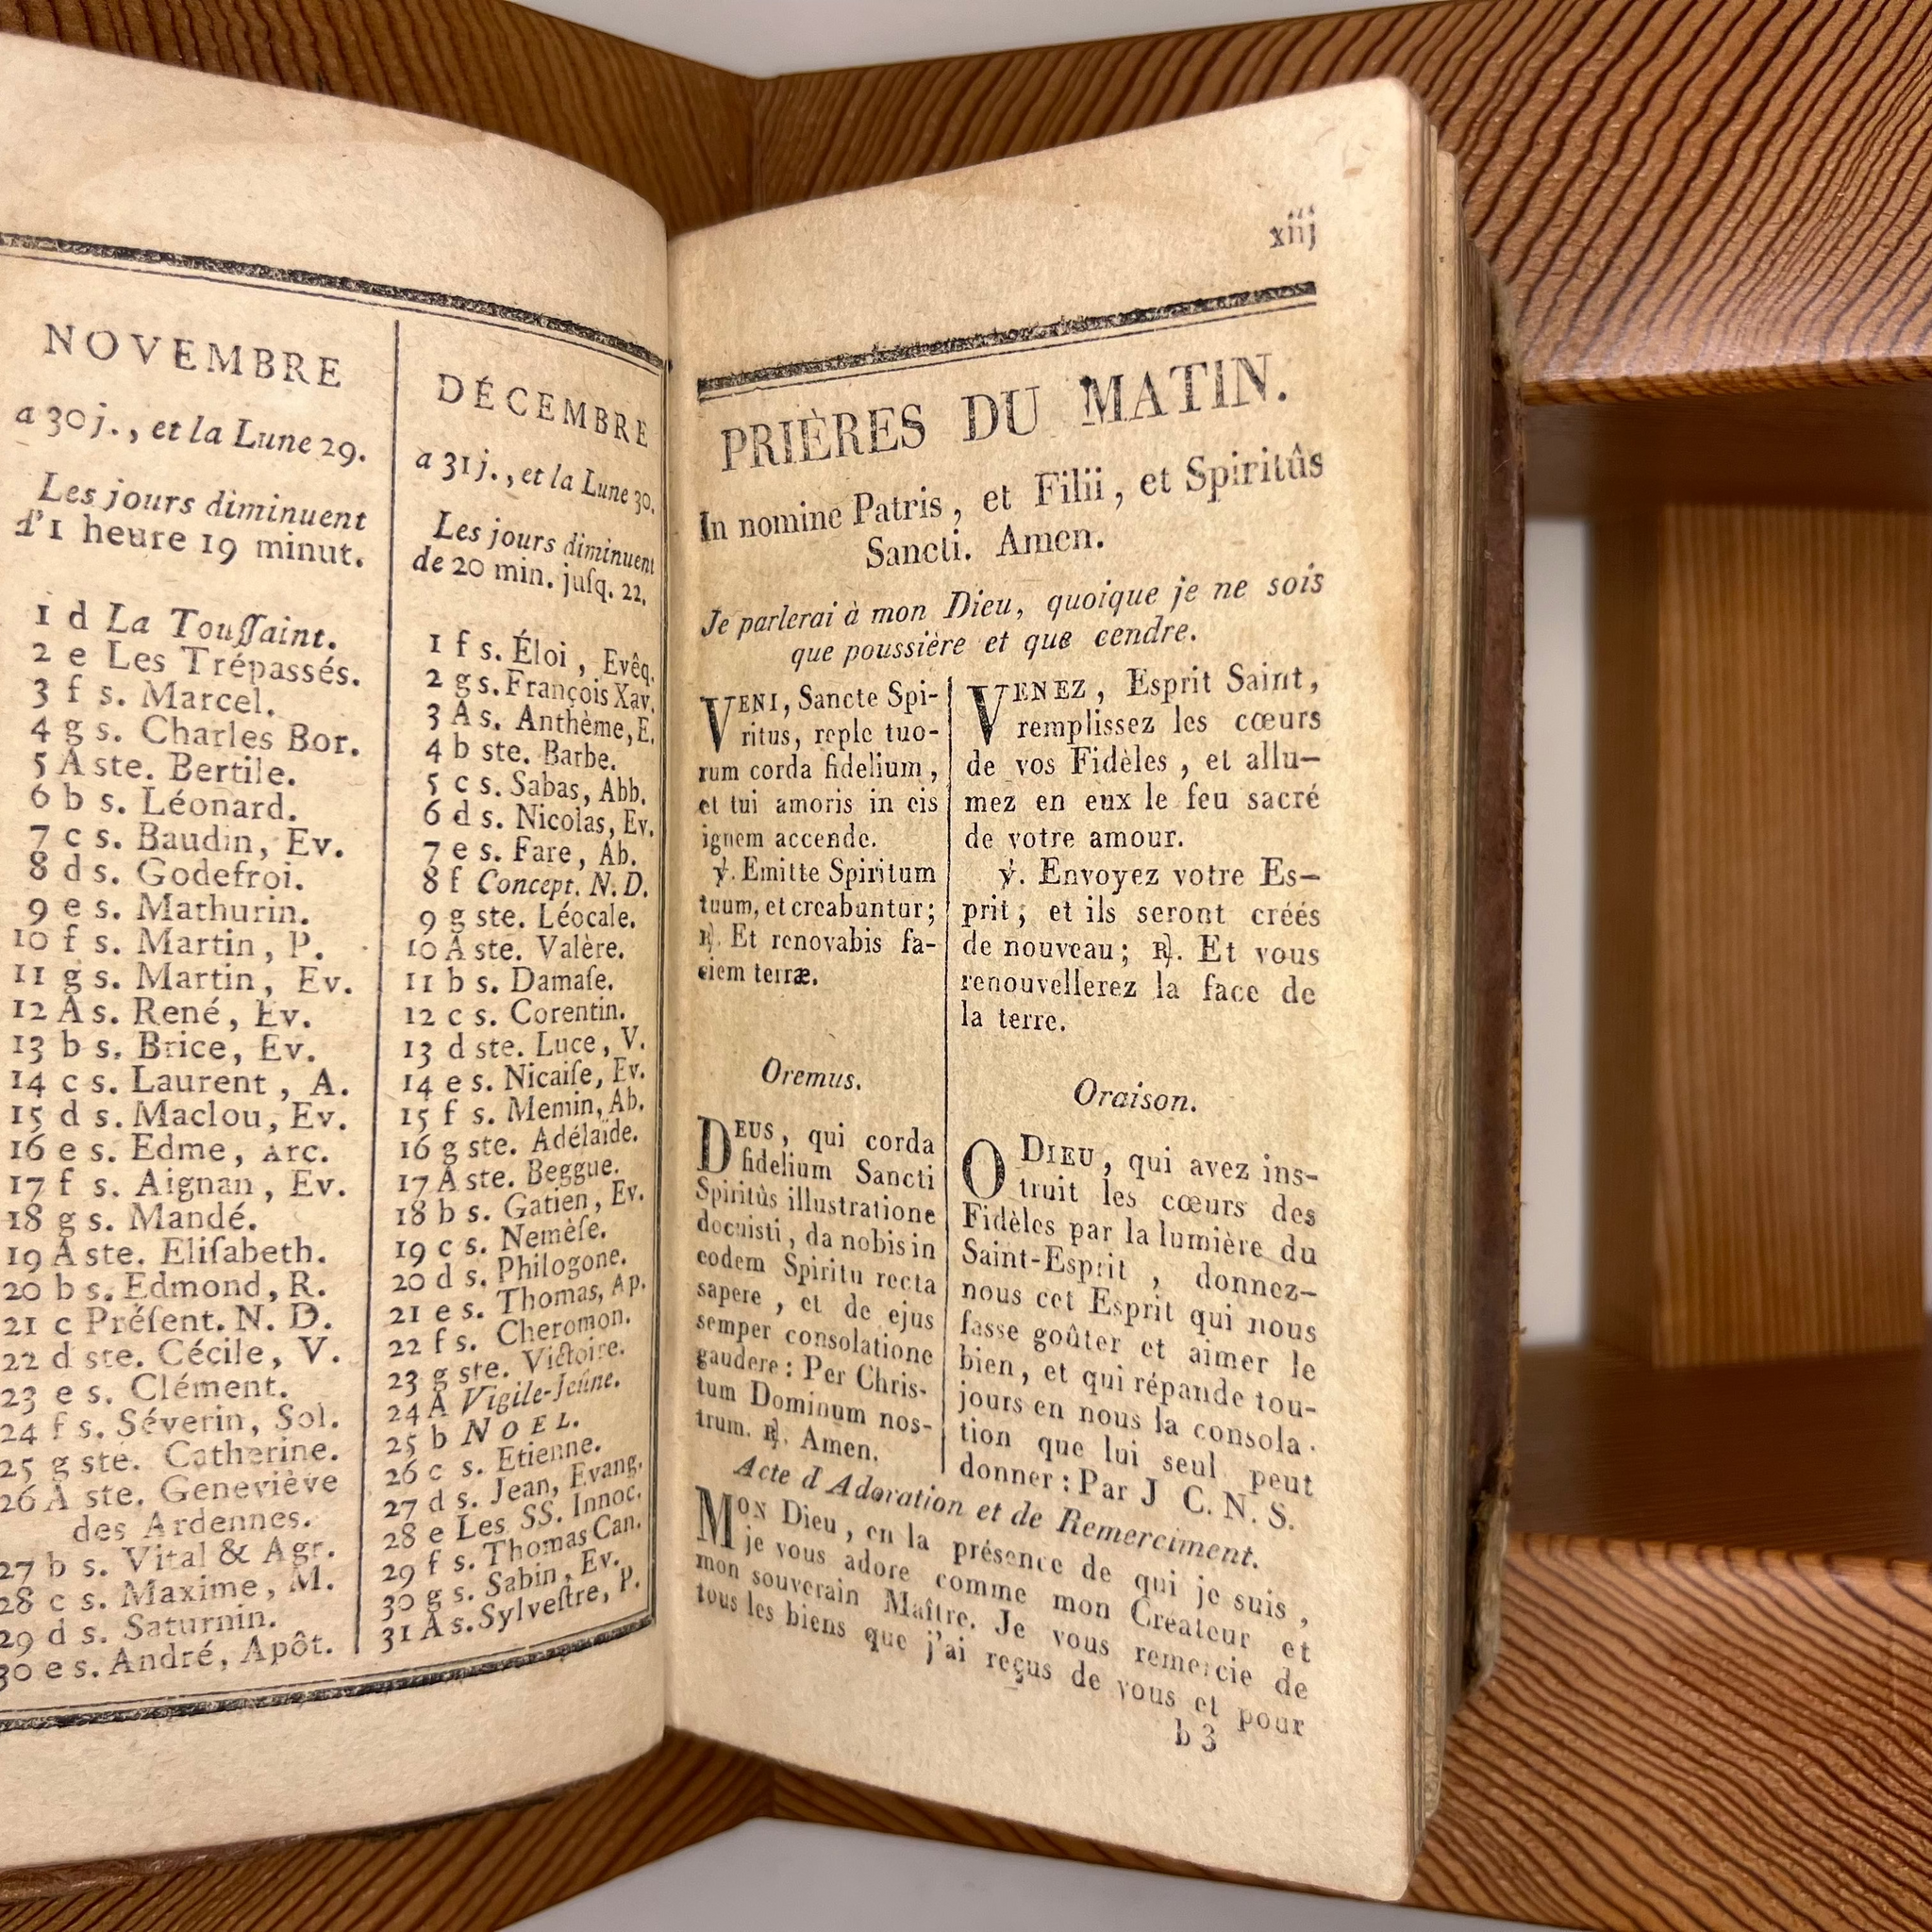 NOVEMBRE
a 30 j., et la Lune 29.
Les jours diminuent
d'1 heure 19 minut.
1 d La Touſſaint.
2 e Les Trépassés.
3 f s. Marcel.
4 g s. Charles Bor.
5 A ste. Bertile.
6 b s. Léonard.
7 c s. Baudin, Ev.
8 d s. Godefroi.
9 e s. Mathurin.
10 f s. Martin, P.
11 g s. Martin, Ev.
12 A s. René, Ev.
13 b s. Brice, Ev.
14 c s. Laurent, A.
15 d s. Maclou, Ev.
16 e s. Edme, Arc.
17 f s. Aignan, Ev.
18 g s. Mandé.
19 A ste. Eliſabeth.
20 b s. Edmond, R.
21 c Préſent. N. D.
22 d ste. Cécile, V.
23 e s. Clément.
24 f s. Séverin, Sol.
25 g ste. Catherine.
26 A ste. Geneviève
des Ardennes.
27 b s. Vital & Agr.
28 c s. Maxime, M.
29 d s. Saturnin.
30 e s. André, Apôt.
DÉCEMBRE
a 31 j., et la Lune 30.
Les jours diminuent
de 20 min. juſq. 22.
1 f s. Éloi, Evêq.
2 g s. François Xav.
3 A s. Anthème, E.
4 b ste. Barbe.
5 c s. Sabas, Abb.
6 d s. Nicolas, Ev.
7 e s. Fare, Ab.
8 f Concept. N. D.
9 g ste. Léocale.
10 A ste. Valère.
11 b s. Damaſe.
12 c s. Corentin.
13 d ste. Luce, V.
14 e s. Nicaiſe, Ev.
15 f s. Memin, Ab.
16 g ste. Adélaïde.
17 A ste. Beggue.
18 b s. Gatien, Ev.
19 c s. Nemèſe.
20 d s. Philogone.
21 e s. Thomas, Ap.
22 f s. Cheromon.
23 g ste. Victoire.
24 A Vigile-Jeûne.
25 b NOEL.
26 c s. Etienne.
27 d s. Jean, Evang.
28 e Les SS. Innoc.
29 f s. Thomas Can.
30 g s. Sabin, Ev.
31 A s. Sylveſtre, P.
xiij
PRIÈRES DU MATIN.
In nomine Patris, et Filii, et Spiritûs
Sancti. Amen.
Je parlerai à mon Dieu, quoique je ne sois
que poussière et que cendre.
VENI, Sancte Spi-
ritus, reple tuo-
rum corda fidelium,
et tui amoris in eis
ignem accende.
℣. Emitte Spiritum
tuum, et creabuntur;
℟. Et renovabis fa-
ciem terræ.
Oremus.
DEUS, qui corda
fidelium Sancti
Spiritûs illustratione
docuisti, da nobis in
eodem Spiritu recta
sapere, et de ejus
semper consolatione
gaudere: Per Chris-
tum Dominum nos-
trum. ℟. Amen.
VENEZ, Esprit Saint,
remplissez les cœurs
de vos Fidèles, et allu-
mez en eux le feu sacré
de votre amour.
℣. Envoyez votre Es-
prit; et ils seront créés
de nouveau; ℟. Et vous
renouvellerez la face de
la terre.
Oraison.
O DIEU, qui avez ins-
truit les cœurs des
Fidèles par la lumière du
Saint-Esprit, donnez-
nous cet Esprit qui nous
fasse goûter et aimer le
bien, et qui répande tou-
jours en nous la consola-
tion que lui seul peut
donner: Par J C. N. S.
Acte d'Adoration et de Remerciment.
MON Dieu, en la présence de qui je suis,
je vous adore comme mon Créateur et
mon souverain Maître. Je vous remercie de
tous les biens que j'ai reçus de vous et pour
b 3